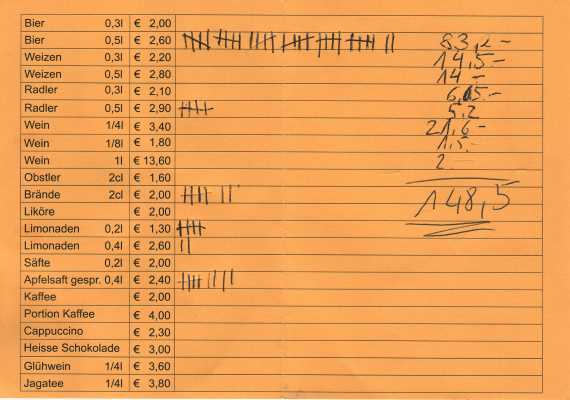 Bier 0,3l € 2,00
Bier 0,5l € 2,60 83,2-
Weizen 0,3l € 2,20 14,5-
Weizen 0,5l € 2,80 14-
Radler 0,3l € 2,10
Radler 0,5l € 2,90 5,2
Wein 1/4l € 3,40 21,6-
Wein 1/8l € 1,80 1,5-
Wein 1l € 13,60 2
Obstler 2cl € 1,60
Brände 2cl € 2,00 148,5
Liköre € 2,00
Limonaden 0,2l € 1,30
Limonaden 0,4l € 2,60
Säfte 0,2l € 2,00
Apfelsaft gespr. 0,4l € 2,40
Kaffee € 2,00
Portion Kaffee € 4,00
Cappuccino € 2,30
Heisse Schokolade € 3,00
Glühwein 1/4l € 3,60
Jagatee 1/4l € 3,80